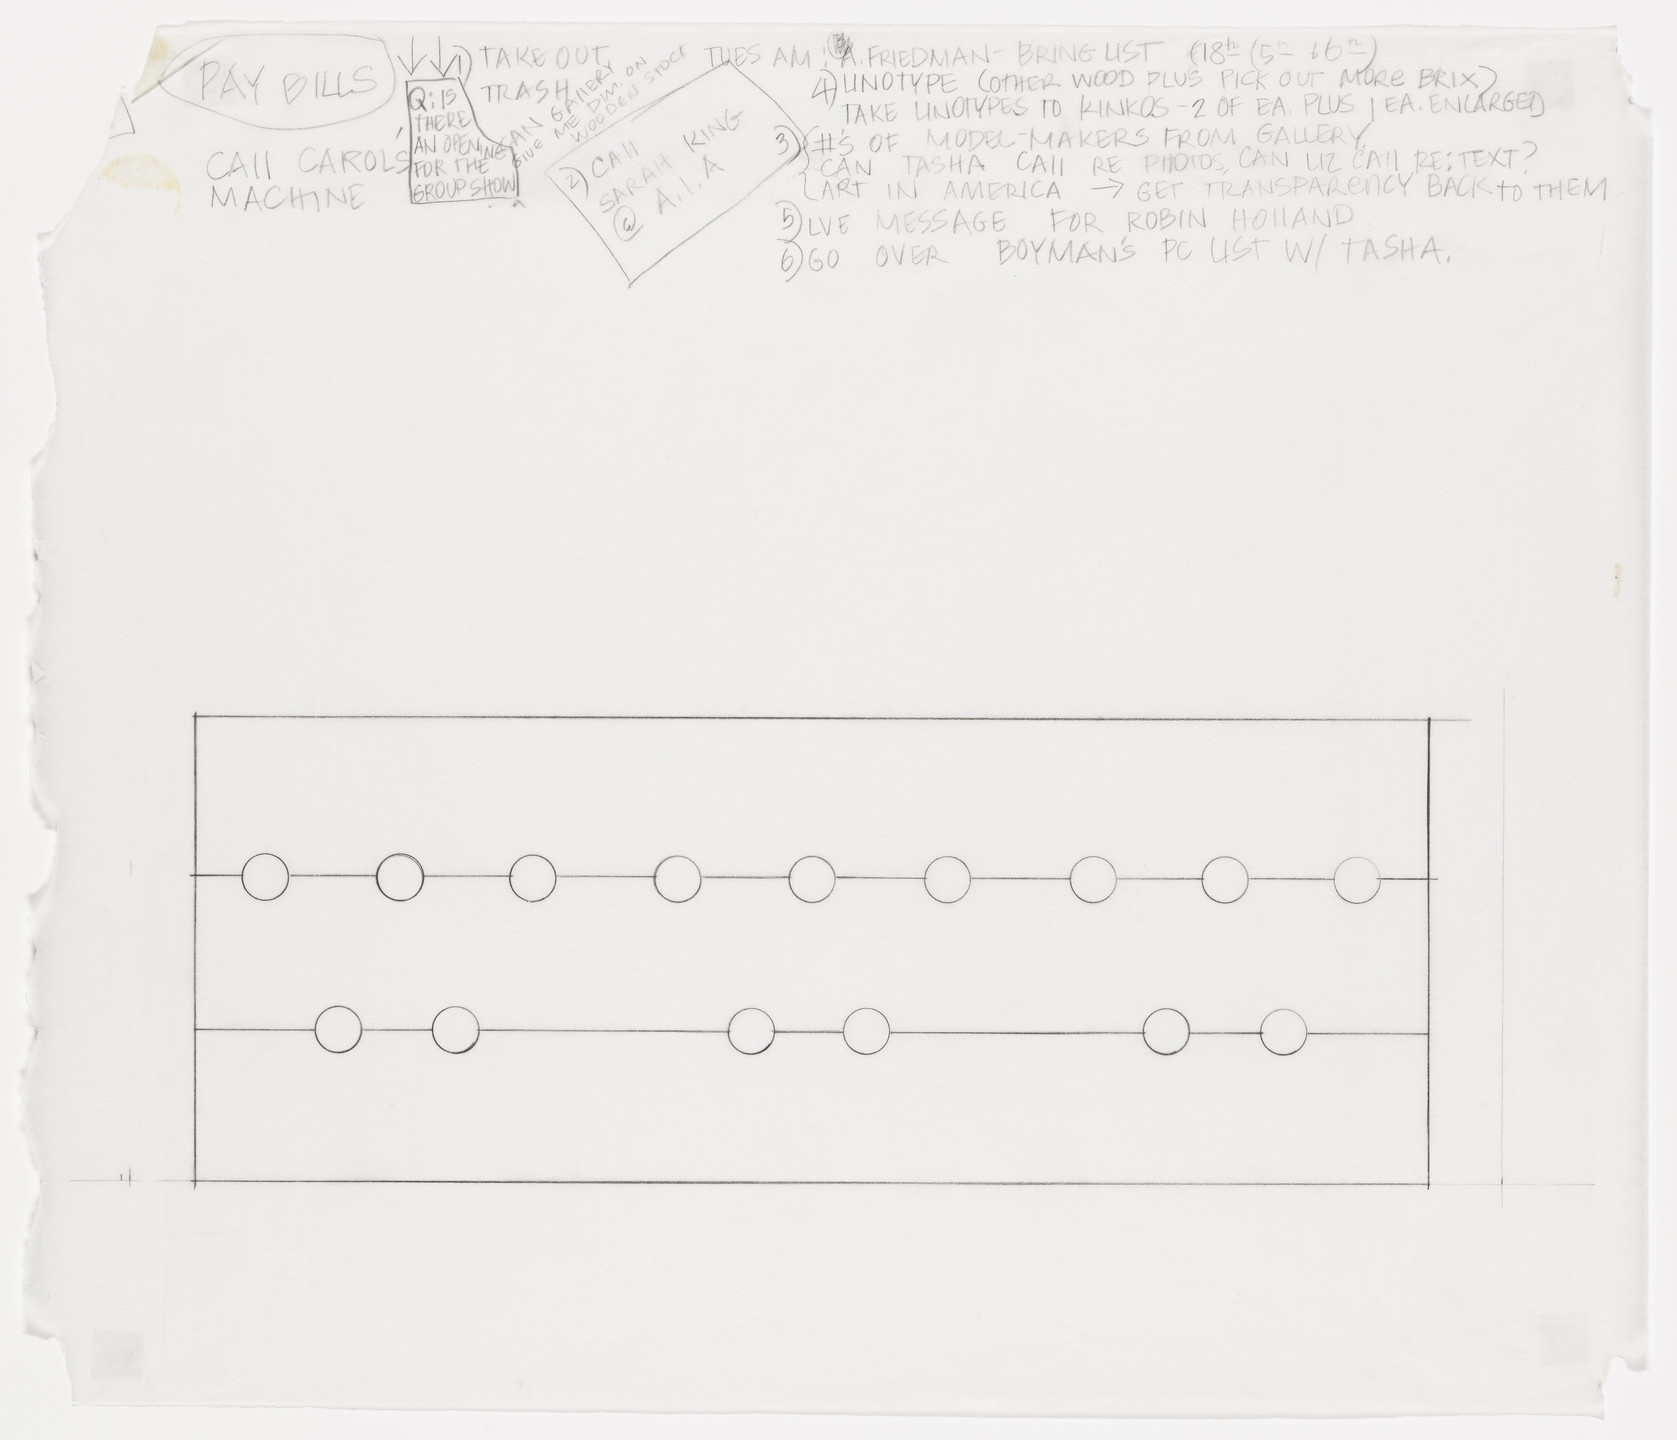 PAY BILLS
CALL CAROL'S
MACHINE
Q: IS
THERE
AN OPENING
FOR THE
GROUP SHOW
1) TAKE OUT
TRASH
CAN GALLERY
GIVE ME DIM. ON
WOODEN STOCK
2) CALL
SARAH KING
@ A.I.A
TUES AM: A. FRIEDMAN - BRING LIST (18th (5th + 6th)
4) LINOTYPE (OTHER WOOD PLUS PICK OUT MORE BRIX)
TAKE LINOTYPES TO KINKOS - 2 OF EA. PLUS 1 EA. ENLARGED
3) #'S OF MODEL-MAKERS FROM GALLERY
CAN TASHA CALL RE PHOTOS, CAN LIZ CALL RE: TEXT?
ART IN AMERICA → GET TRANSPARENCY BACK TO THEM
5) LVE MESSAGE FOR ROBIN HOLLAND
6) GO OVER BOYMAN'S PC LIST W/ TASHA.